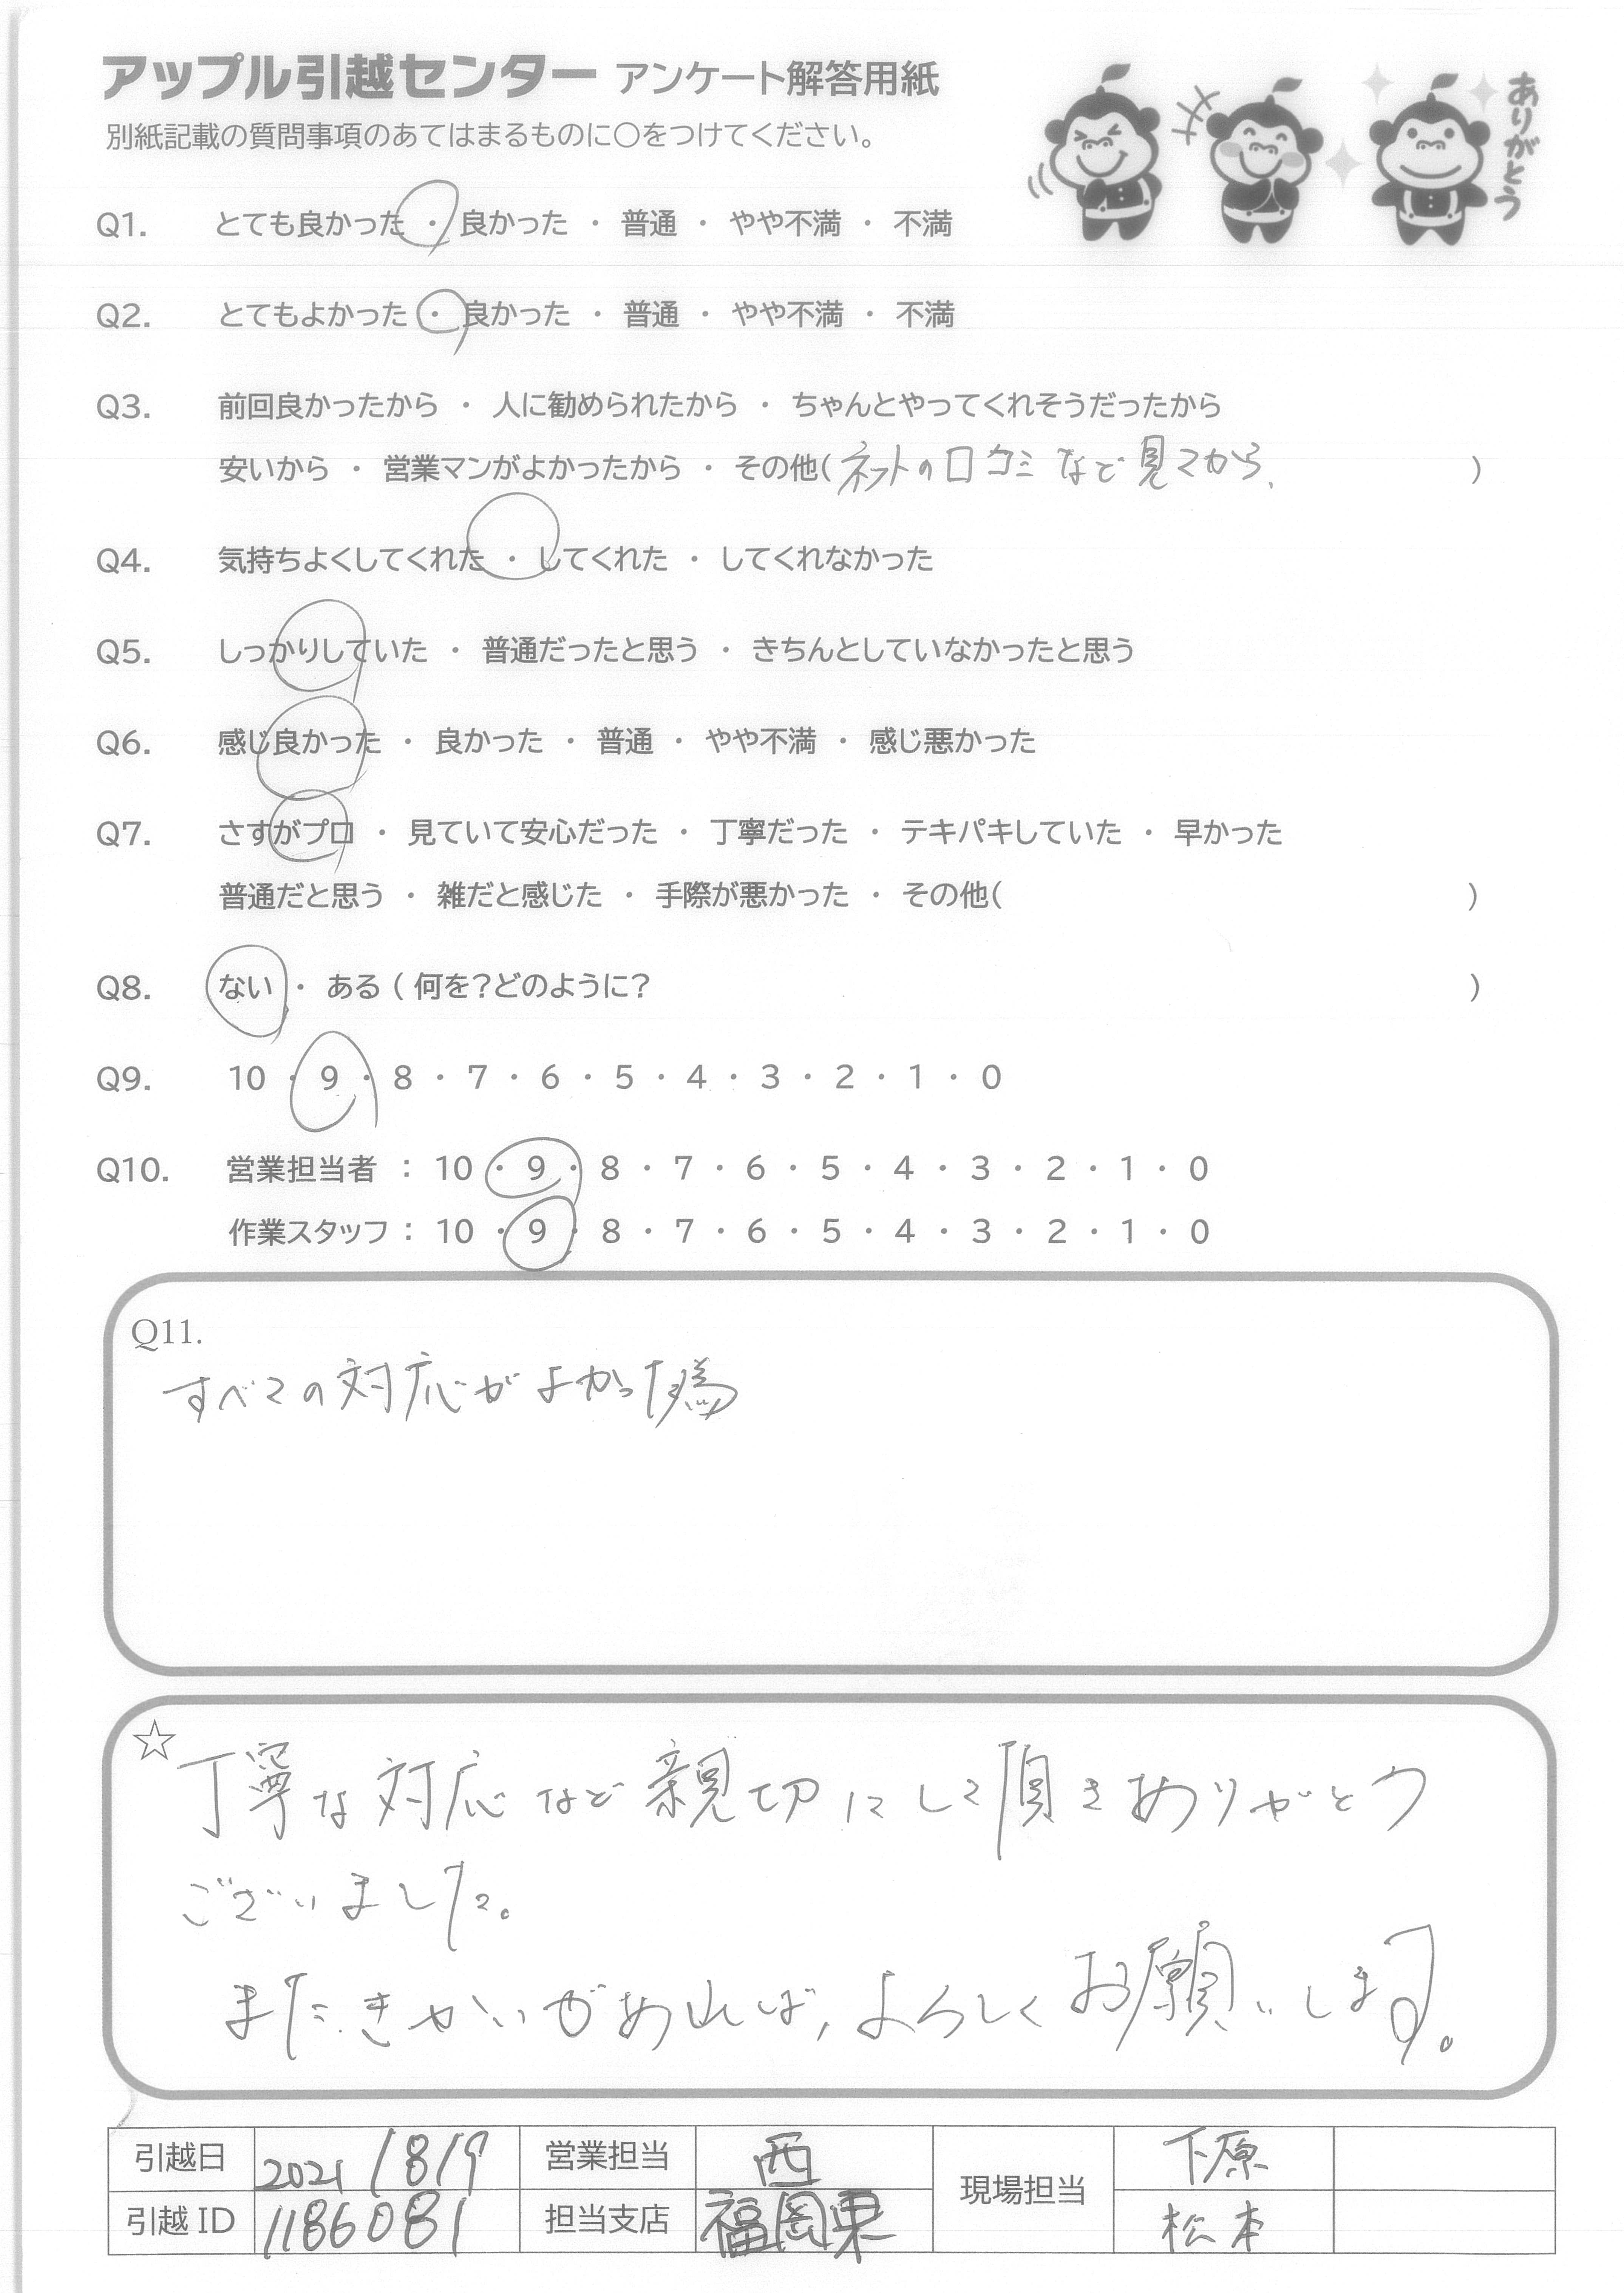 アップル引越センター アンケート解答用紙
別紙記載の質問事項のあてはまるものに〇をつけてください。
ありがとう
Q1. とても良かった ・ 良かった ・ 普通 ・ やや不満 ・ 不満
Q2. とてもよかった ・ 良かった ・ 普通 ・ やや不満 ・ 不満
Q3. 前回良かったから ・ 人に勧められたから ・ ちゃんとやってくれそうだったから
安いから ・ 営業マンがよかったから ・ その他(ネットの口コミなど見てから、)
Q4. 気持ちよくしてくれた ・ してくれた ・ してくれなかった
Q5. しっかりしていた ・ 普通だったと思う ・ きちんとしていなかったと思う
Q6. 感じ良かった ・ 良かった ・ 普通 ・ やや不満 ・ 感じ悪かった
Q7. さすがプロ ・ 見ていて安心だった ・ 丁寧だった ・ テキパキしていた ・ 早かった
普通だと思う ・ 雑だと感じた ・ 手際が悪かった ・ その他( )
Q8. ない ・ ある ( 何を?どのように? )
Q9. 10 ・ 9 ・ 8 ・ 7 ・ 6 ・ 5 ・ 4 ・ 3 ・ 2 ・ 1 ・ 0
Q10. 営業担当者 : 10 ・ 9 ・ 8 ・ 7 ・ 6 ・ 5 ・ 4 ・ 3 ・ 2 ・ 1 ・ 0
作業スタッフ : 10 ・ 9 ・ 8 ・ 7 ・ 6 ・ 5 ・ 4 ・ 3 ・ 2 ・ 1 ・ 0
Q11.
すべての対応がよかった為
☆丁寧な対応など親切にして頂きありがとう
ございました。
またきかいがあれば、よろしくお願いします。
引越日 2021/8/9 営業担当 西 現場担当 下原
引越ID 1186081 担当支店 福岡東 松本